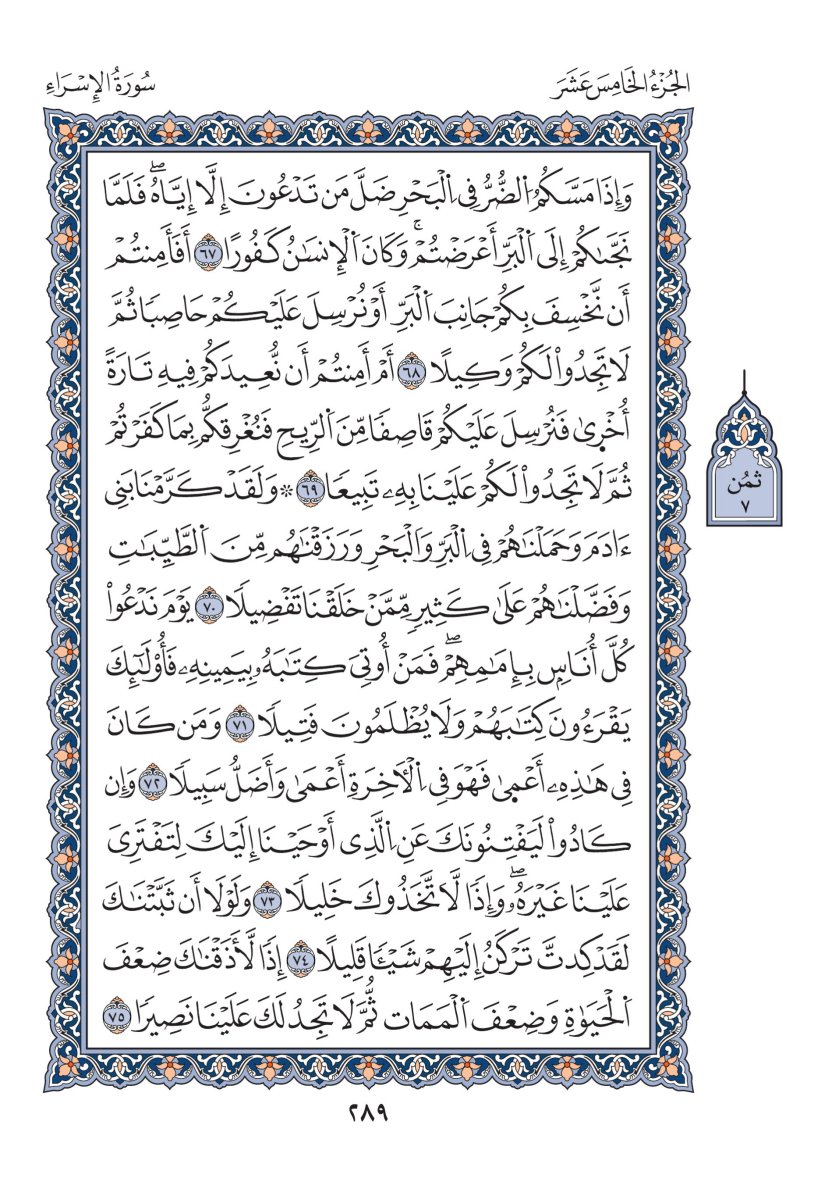 الجُزْءُ الخَامِسَ عَشَرَ
سُورَةُ الإِسْرَاءِ
وَإِذَا مَسَّكُمُ اُ۬لضُّرُّ فِى اِ۬لْبَحْرِ ضَلَّ مَن تَدْعُونَ إِلَّا إِيَّاهُۖ فَلَمَّا
نَجَّىٰكُمْ إِلَى اَ۬لْبَرِّ أَعْرَضْتُمْۚ وَكَانَ اَ۬لْإِنسَٰنُ كَفُورًا ٦٧ أَفَأَمِنتُمْ
أَن نَّخْسِفَ بِكُمْ جَانِبَ اَ۬لْبَرِّ أَوْ نُرْسِلَ عَلَيْكُمْ حَاصِبًا ثُمَّ
لَا تَجِدُواْ لَكُمْ وَكِيلًا ٦٨ أَمْ أَمِنتُمْ أَن نُّعِيدَكُمْ فِيهِ تَارَةً
أُخْرۭىٰ فَنُرْسِلَ عَلَيْكُمْ قَاصِفًا مِّنَ اَ۬لرِّيحِ فَنُغْرِقكُّم بِمَا كَفَرْتُمْ
ثُمَّ لَا تَجِدُواْ لَكُمْ عَلَيْنَا بِهِۦ تَبِيعًا ٦٩ ۞وَلَقَدْ كَرَّمْنَا بَنِى
ءَادَمَ وَحَمَلْنَٰهُمْ فِى اِ۬لْبَرِّ وَالْبَحْرِ وَرَزَقْنَٰهُم مِّنَ اَ۬لطَّيِّبَٰتِ
وَفَضَّلْنَٰهُمْ عَلَىٰ كَثِيرٍ مِّمَّنْ خَلَقْنَا تَفْضِيلًا ٧٠ يَوْمَ نَدْعُواْ
كُلَّ أُنَاسِۭ بِإِمَٰمِهِمْۖ فَمَنْ أُوتِىَ كِتَٰبَهُۥ بِيَمِينِهِۦ فَأُوْلَٰٓئِكَ
يَقْرَءُونَ كِتَٰبَهُمْ وَلَا يُظْلَمُونَ فَتِيلًا ٧١ وَمَن كَانَ
فِى هَٰذِهِۦ أَعْمۭىٰ فَهْوَ فِى اِ۬لْأٓخِرَةِ أَعْمَىٰ وَأَضَلُّ سَبِيلًا ٧٢ وَإِن
كَادُواْ لَيَفْتِنُونَكَ عَنِ اِ۬لَّذِى أَوْحَيْنَا إِلَيْكَ لِتَفْتَرِىَ
عَلَيْنَا غَيْرَهُۥۖ وَإِذًا لَّاتَّخَذُوكَ خَلِيلًا ٧٣ وَلَوْلَا أَن ثَبَّتْنَٰكَ
لَقَدْ كِدتَّ تَرْكَنُ إِلَيْهِمْ شَيْـًٔا قَلِيلًا ٧٤ إِذًا لَّأَذَقْنَٰكَ ضِعْفَ
اَ۬لْحَيَوٰةِ وَضِعْفَ اَ۬لْمَمَات ثُّمَّ لَا تَجِدُ لَكَ عَلَيْنَا نَصِيرًا ٧٥
ثُمُن
٧
٢٨٩